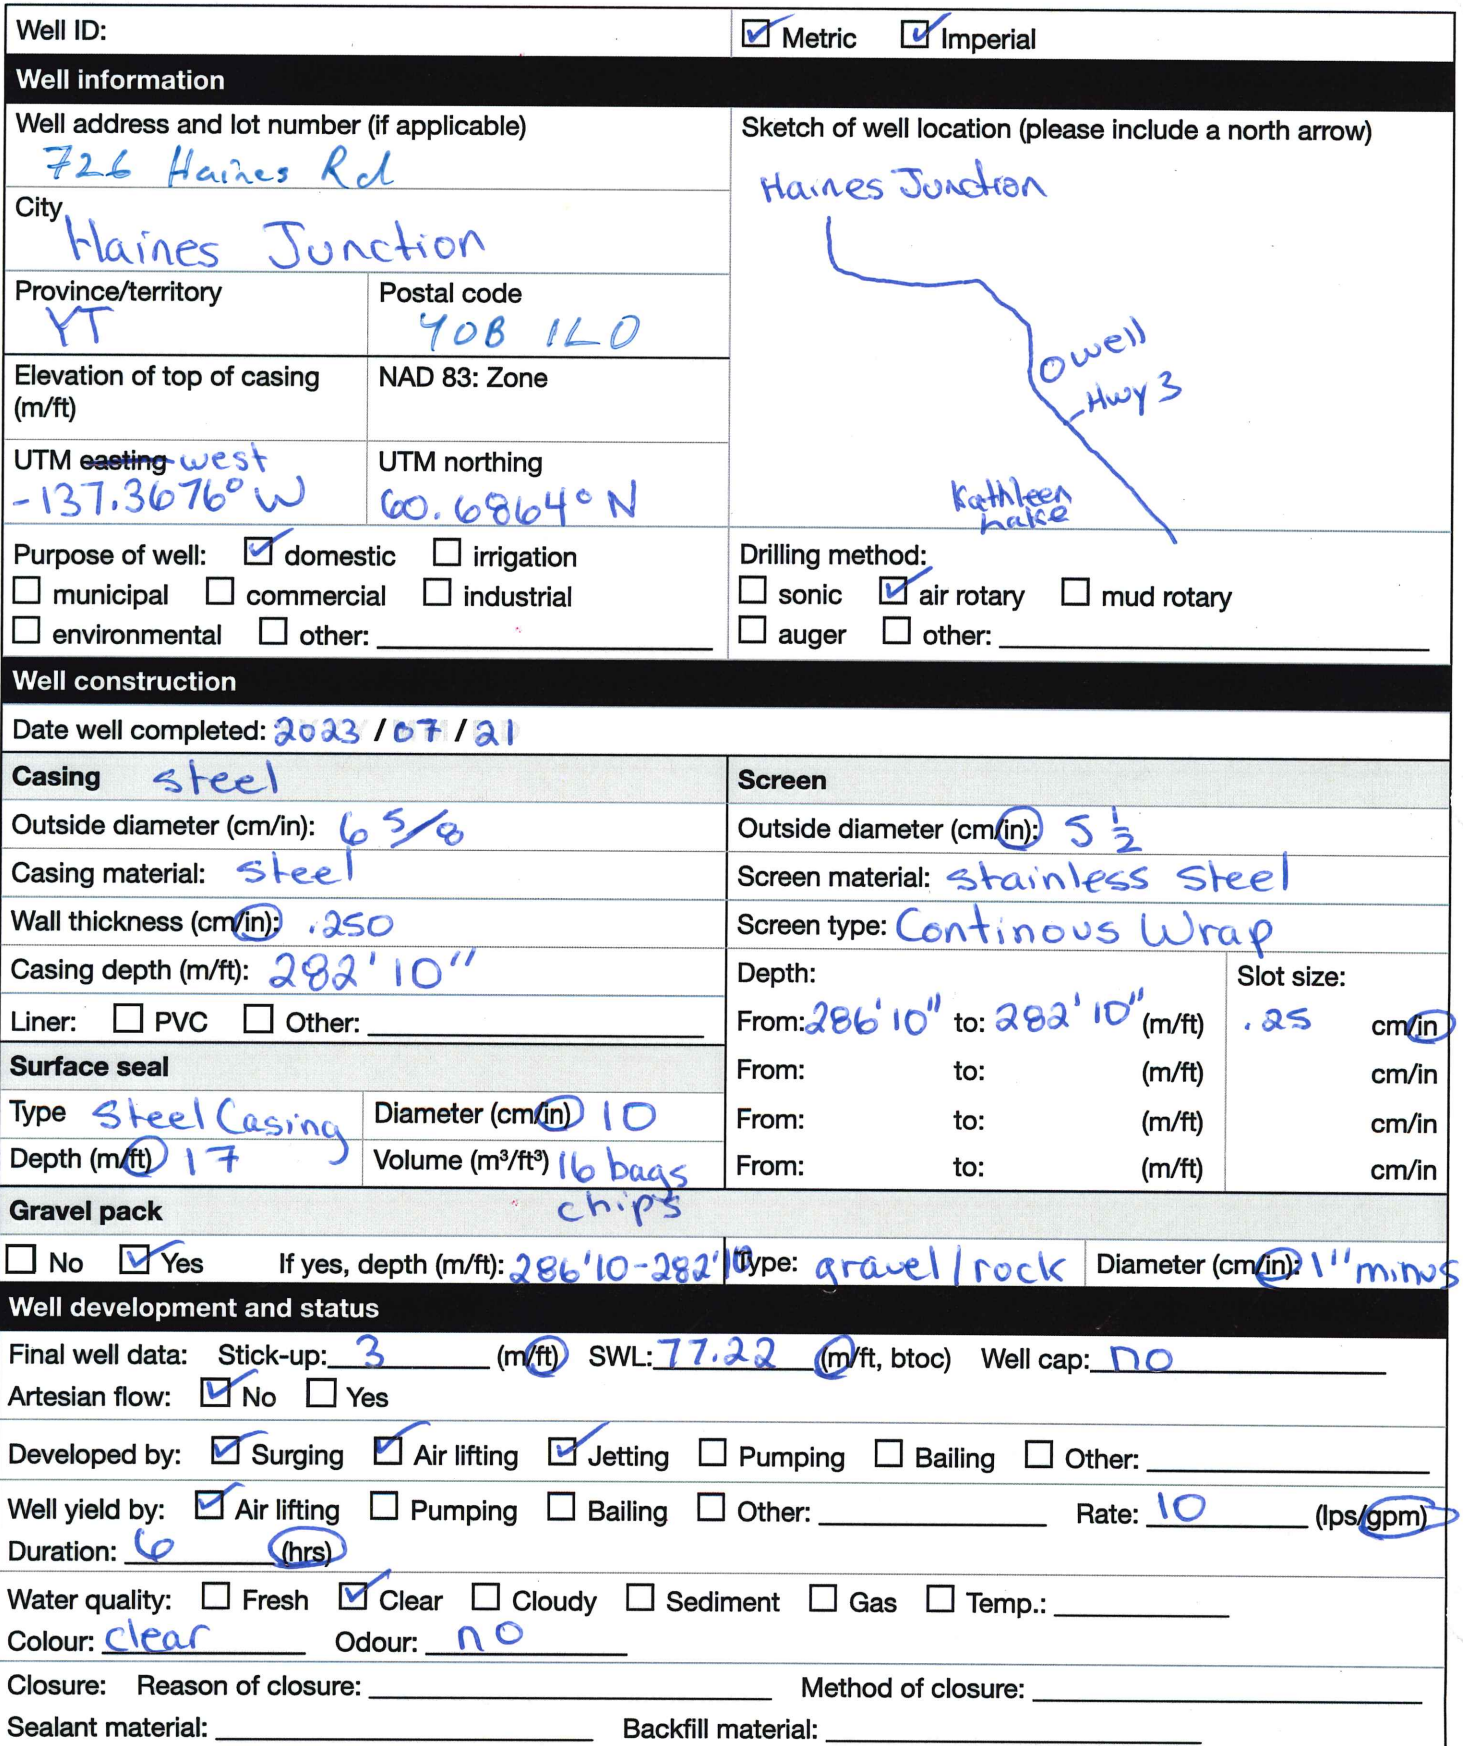 Well ID:
☑ Metric ☑ Imperial
Well information
Well address and lot number (if applicable)
726 Haines Rd
City
Haines Junction
Province/territory
YT
Postal code
Y0B 1L0
Elevation of top of casing
(m/ft)
NAD 83: Zone
UTM easting west
-137.3676° W
UTM northing
60.6864° N
Sketch of well location (please include a north arrow)
Haines Junction
O well
Hwy 3
Kathleen
Lake
Purpose of well: ☑ domestic ☐ irrigation
☐ municipal ☐ commercial ☐ industrial
☐ environmental ☐ other:
Drilling method:
☐ sonic ☑ air rotary ☐ mud rotary
☐ auger ☐ other:
Well construction
Date well completed: 2023 / 07 / 21
Casing steel
Outside diameter (cm/in): 6 5/8
Casing material: steel
Wall thickness (cm/in): .250
Casing depth (m/ft): 282' 10"
Liner: ☐ PVC ☐ Other:
Surface seal
Type Steel Casing
Diameter (cm/in) 10
Depth (m/ft) 17
Volume (m³/ft³) 16 bags
chips
Screen
Outside diameter (cm/in): 5 1/2
Screen material: stainless steel
Screen type: Continous Wrap
Depth:
Slot size:
From: 286' 10" to: 282' 10" (m/ft) .25 cm/in
From: to: (m/ft) cm/in
From: to: (m/ft) cm/in
From: to: (m/ft) cm/in
Gravel pack
☐ No ☑ Yes If yes, depth (m/ft): 286'10-282'10 Type: gravel/rock Diameter (cm/in): 1" minus
Well development and status
Final well data: Stick-up: 3 (m/ft) SWL: 77.22 (m/ft, btoc) Well cap: no
Artesian flow: ☑ No ☐ Yes
Developed by: ☑ Surging ☑ Air lifting ☑ Jetting ☐ Pumping ☐ Bailing ☐ Other:
Well yield by: ☑ Air lifting ☐ Pumping ☐ Bailing ☐ Other: Rate: 10 (lps/gpm)
Duration: 6 (hrs)
Water quality: ☐ Fresh ☑ Clear ☐ Cloudy ☐ Sediment ☐ Gas ☐ Temp.:
Colour: clear Odour: no
Closure: Reason of closure: Method of closure:
Sealant material: Backfill material: